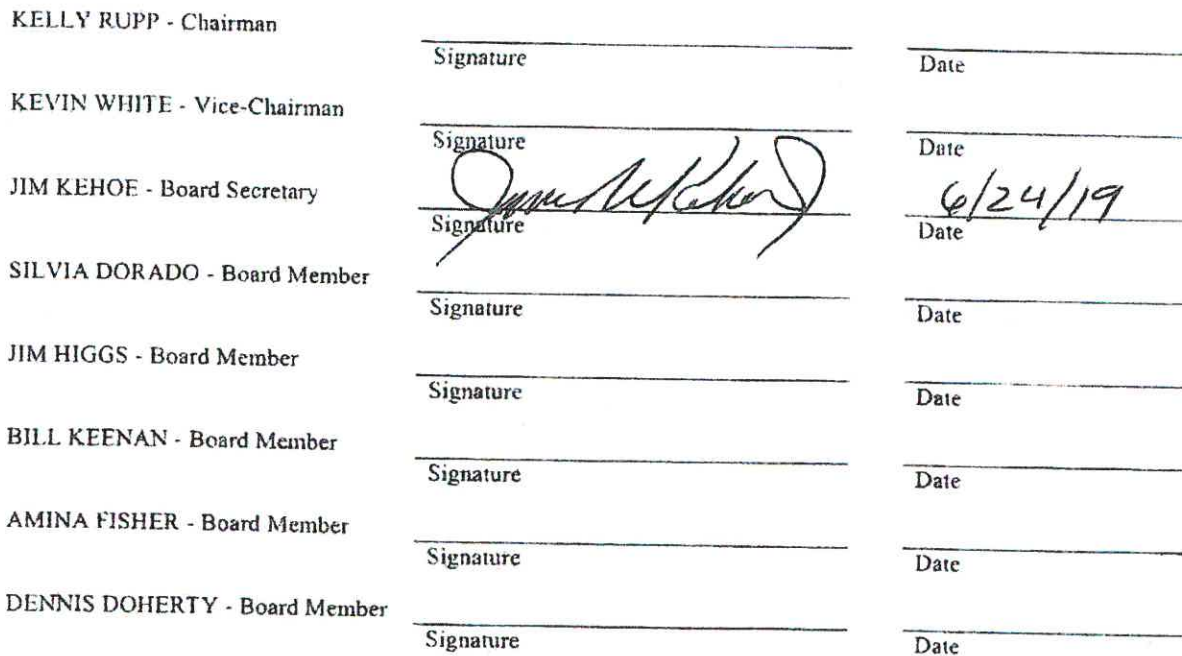 KELLY RUPP - Chairman
Signature Date
KEVIN WHITE - Vice-Chairman
Signature Date
JIM KEHOE - Board Secretary 6/24/19
Signature Date
SILVIA DORADO - Board Member
Signature Date
JIM HIGGS - Board Member
Signature Date
BILL KEENAN - Board Member
Signature Date
AMINA FISHER - Board Member
Signature Date
DENNIS DOHERTY - Board Member
Signature Date